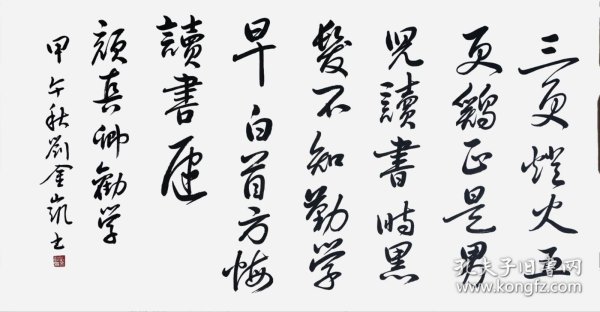 三更燈火五
更鷄正是男
児讀書時黑
髮不知勤学
早白首方悔
讀書遲
顔真卿勸学
甲午秋劉金凱书
孔夫子旧书网
www.kongfz.com